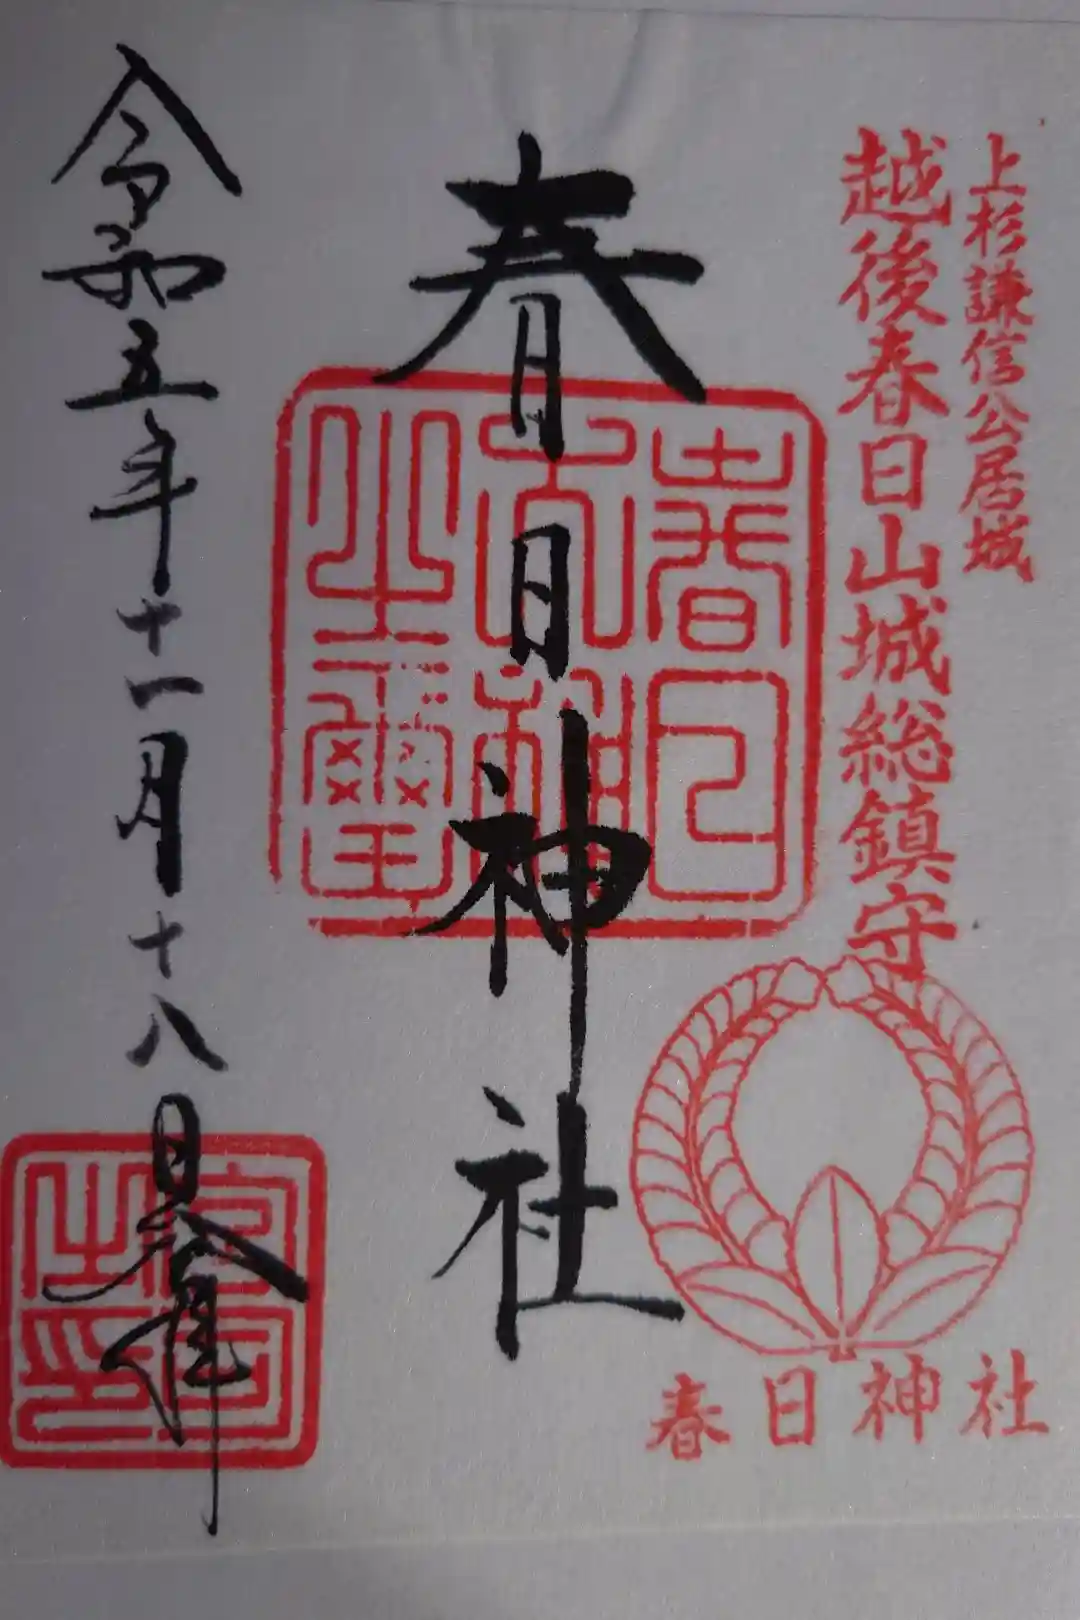 上杉謙信公居城
越後春日山城総鎮守
春日神社
春日神社
春日大神之璽
令和五年十一月十八日奉拝
宮司之印